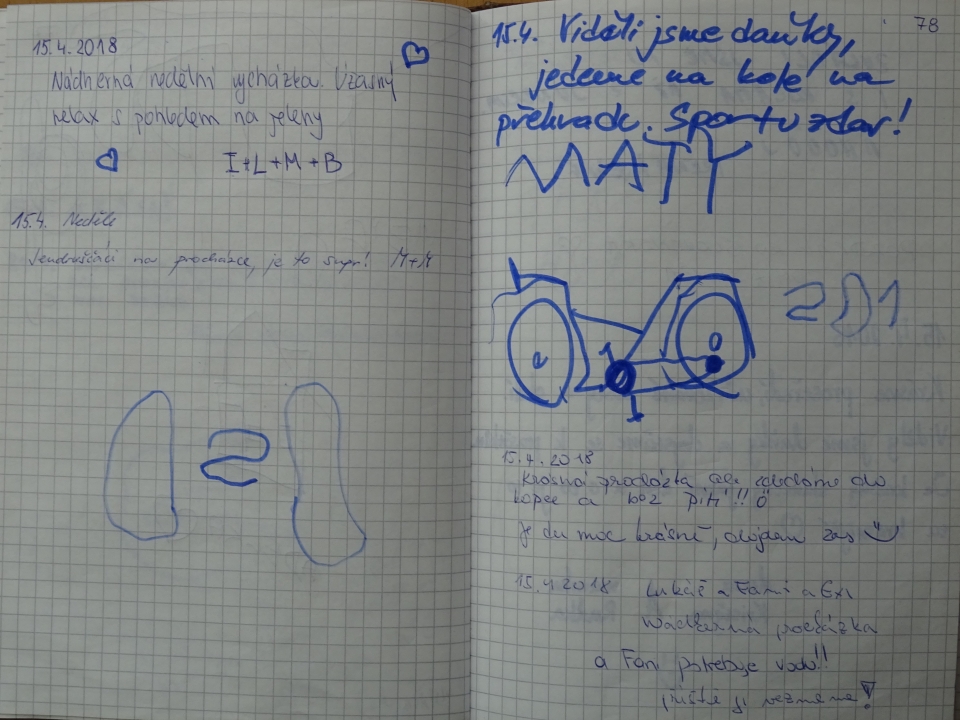 15.4.2018
Nádherná nedělní vycházka. Úžasný
relax s pohledem na jeleny
I+L+M+B
15.4. Neděle
na procházce, je to supr! M+M
78
15.4. Viděli jsme daňky,
jedeme na kole na
přehradu. Sportu zdar!
MATY
15.4.2018
Krásná procházka ale jdeme do
kopce a bez pití!!
Je tu moc krásně, dojdem zas
15.4.2018 Lukáš a Fani a Exi
Nádherná procházka
a Fani potřebuje vodu!!
příště ji vezmeme!